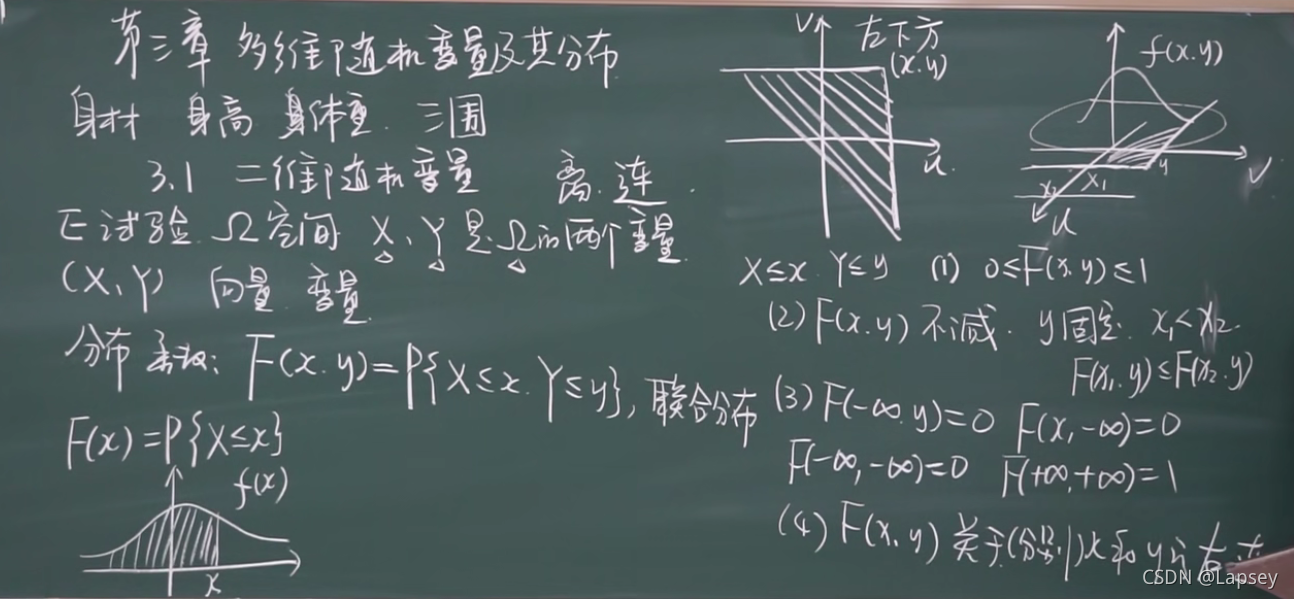 第三章 多维随机变量及其分布
身材 身高 身体重 三围
3.1 二维随机变量 离.连.
E试验 Ω空间 X、Y是Ω的两个变量.
(X、Y) 向量 变量
分布函数: F(x.y)=P{X≤x. Y≤y}, 联合分布
F(x)=P{X≤x}
f(x)
x
V 左下方
(x.y)
u.
f(x.y)
x₂ x₁ y V
u
X≤x. Y≤y (1) 0≤F(x.y)≤1
(2) F(x.y) 不减. y固定. x₁<x₂.
F(x₁.y)≤F(x₂.y)
(3) F(-∞.y)=0 F(x,-∞)=0
F(-∞,-∞)=0 F(+∞,+∞)=1
(4) F(x,y) 关于(分别)x和y的右
CSDN @Lapsey